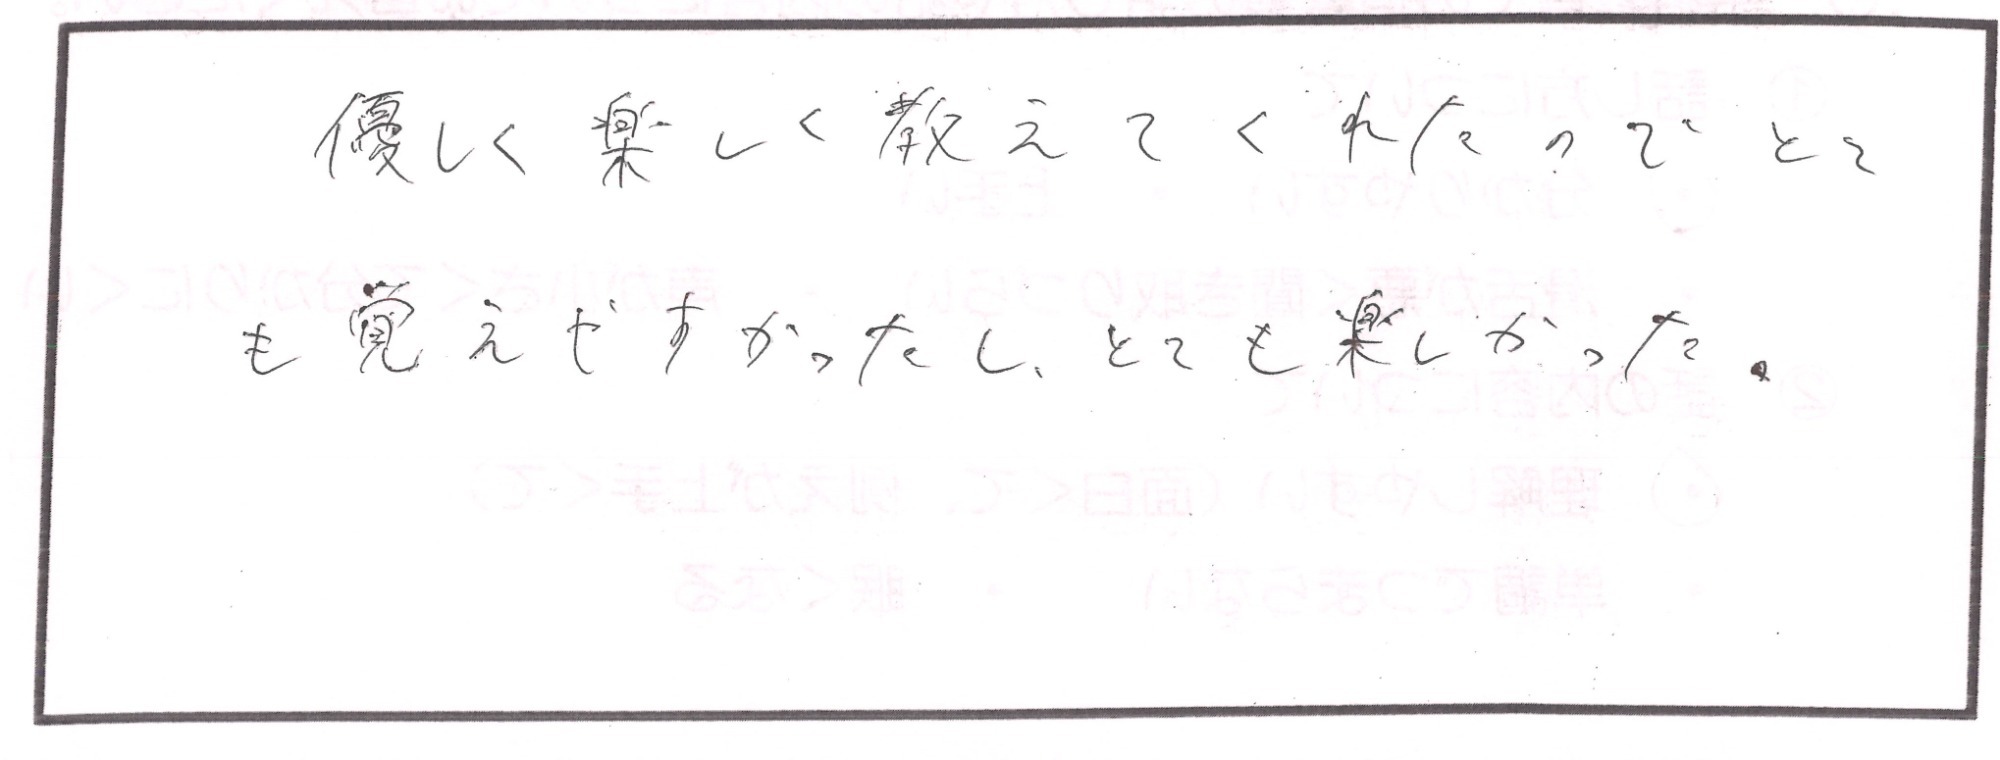 優しく楽しく教えてくれたのでとて
も覚えやすかったし、とても楽しかった。